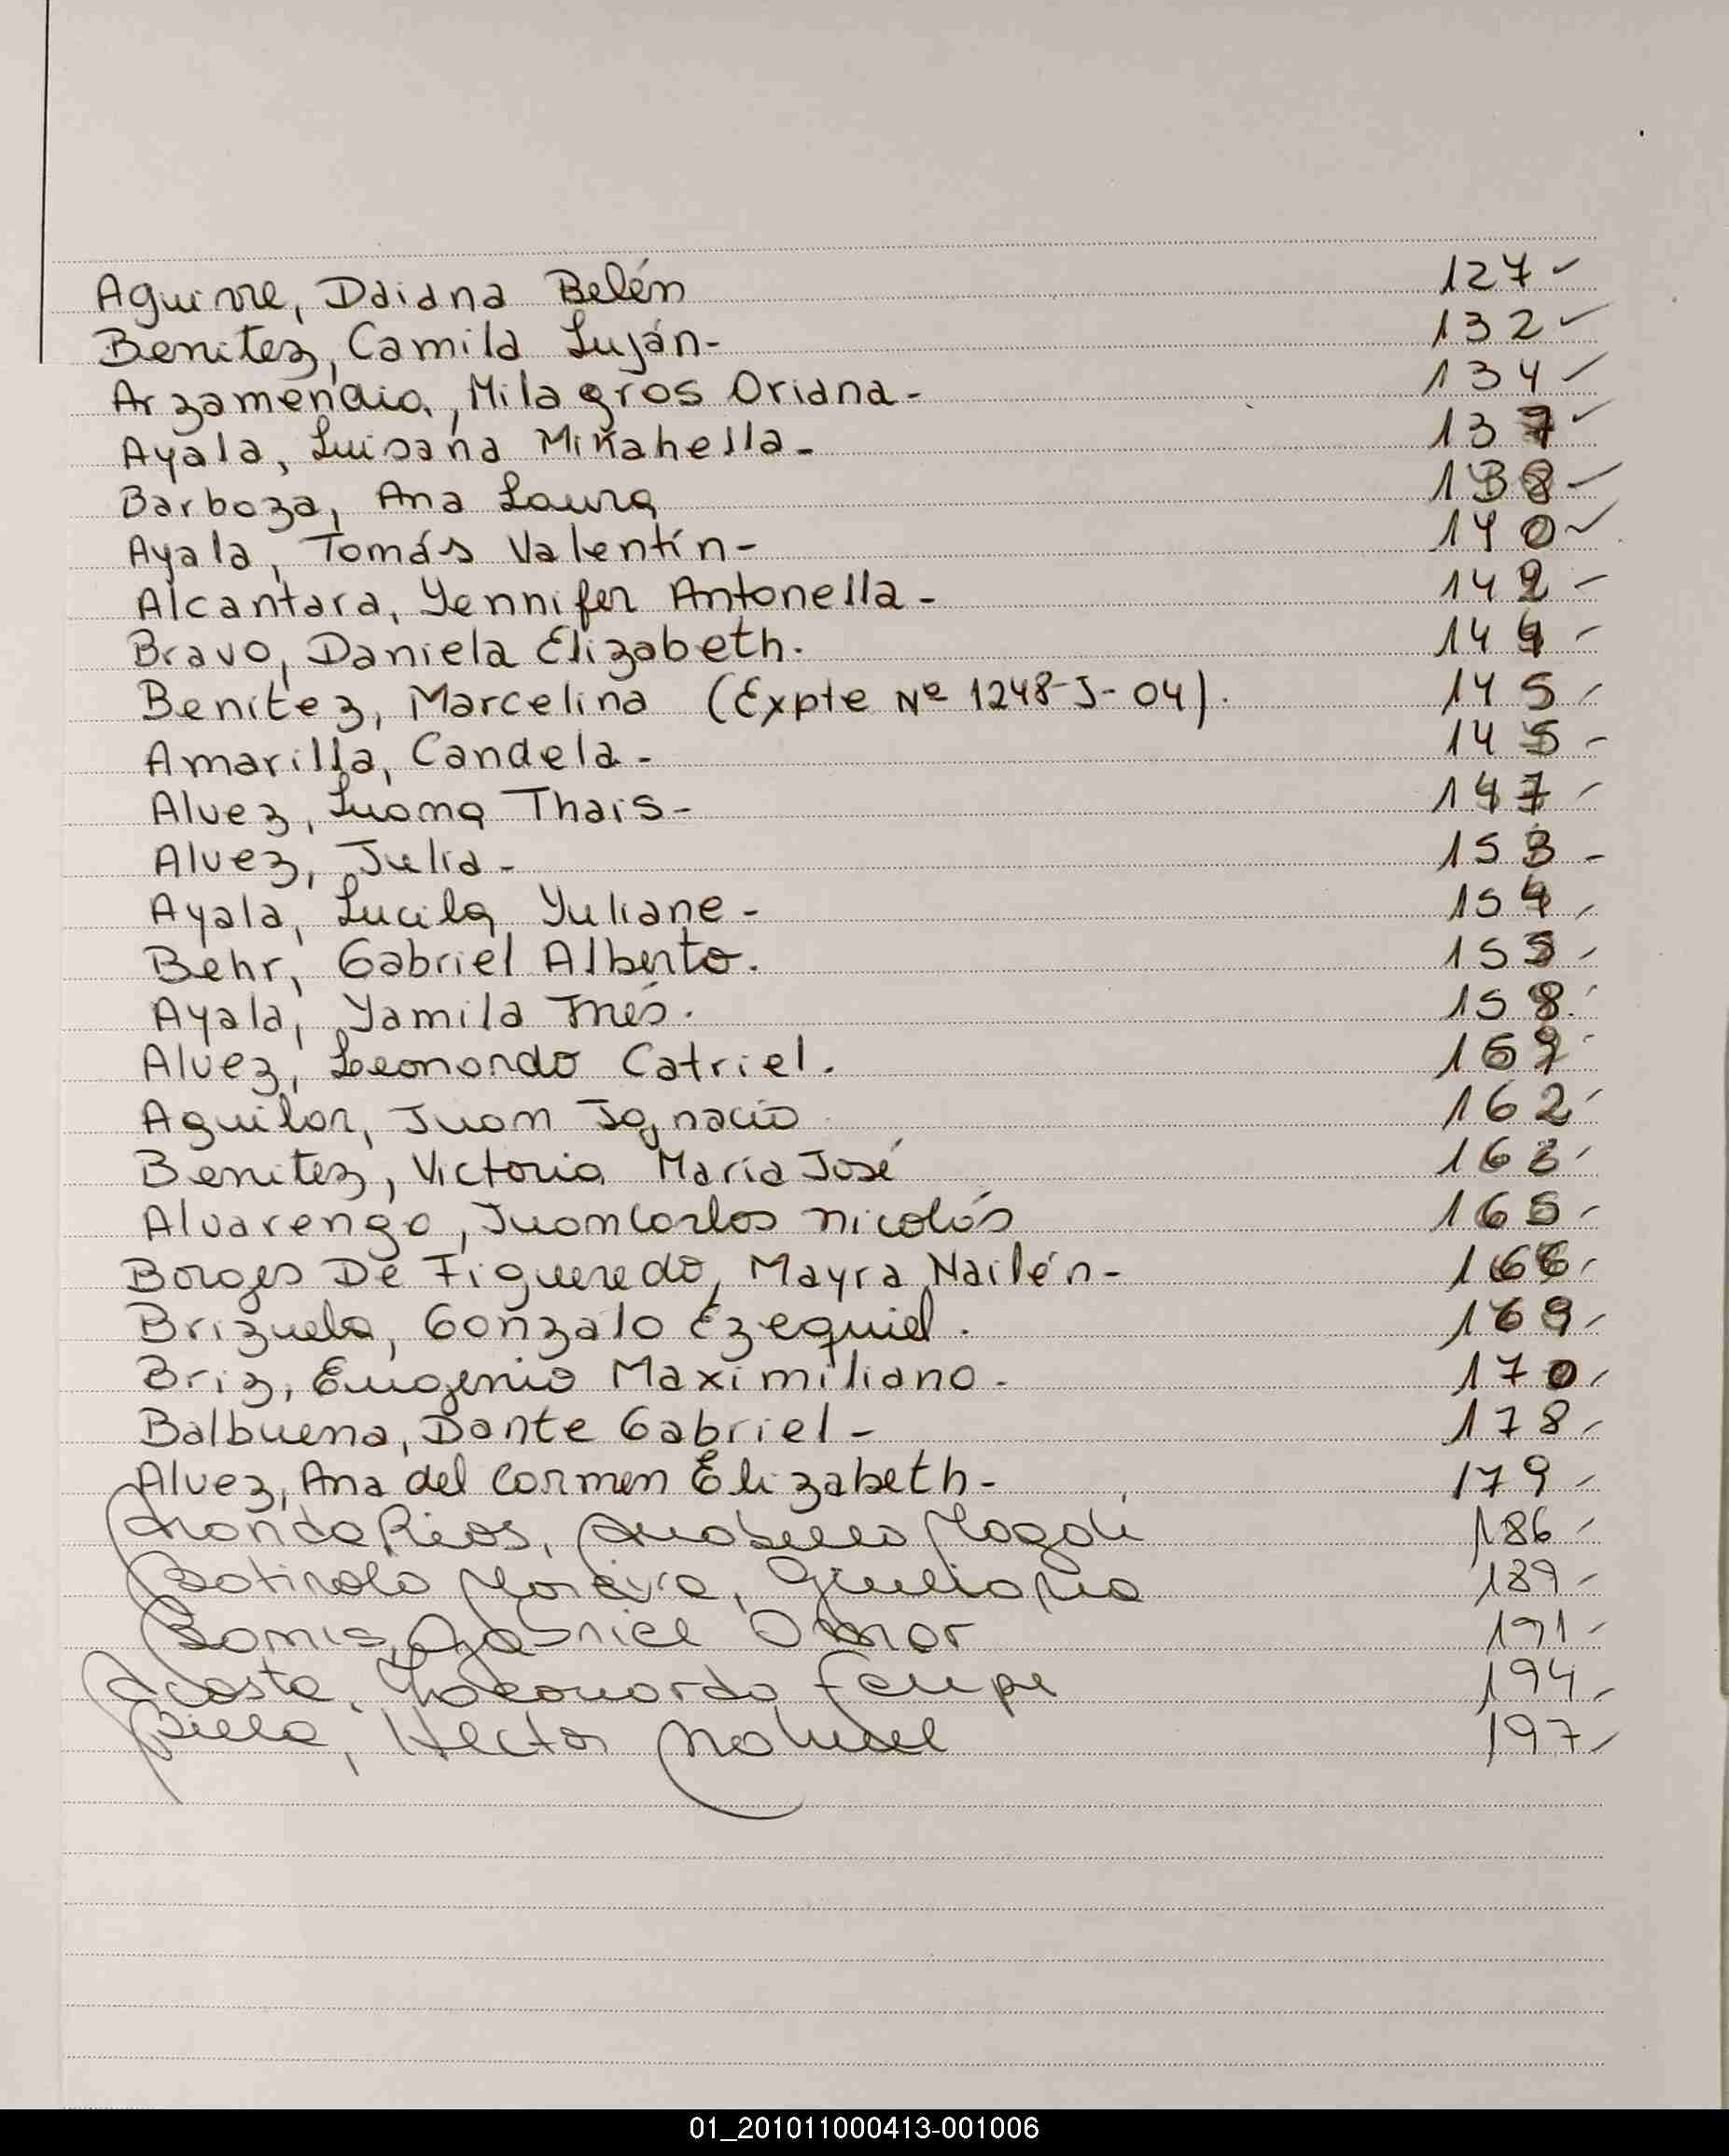 Aguirre, Daiana Belén 127
Benitez, Camila Luján- 132
Arzamendia, Milagros Oriana- 134
Ayala, Luisana Mikahella- 137
Barboza, Ana Laura 138
Ayala, Tomás Valentín- 140
Alcantara, Yennifer Antonella- 142
Bravo, Daniela Elizabeth. 144
Benítez, Marcelina (Expte Nº 1248-J-04). 145
Amarilla, Candela- 145
Alvez, Luana Thais- 147
Alvez, Julia- 153
Ayala, Lucila Yuliane- 154
Behr, Gabriel Alberto. 155
Ayala, Yamila Inés. 158
Alvez, Leonardo Catriel.
Aguilar, Juan Ignacio 162
Benitez, Victoria María José 163
Alvarenga, Juan Carlos Nicolás 165
Borges De Figueredo, Mayra Nailén- 166
Brizuela, Gonzalo Ezequiel. 169
Briz, Eugenio Maximiliano. 170
Balbuena, Dante Gabriel- 178
Alvez, Ana del Carmen Elizabeth- 179
Rios, Magali 186
Moreira, Giuliana 189
Gabriel Omar 191
Acosta, Felipe 194
Hector 197
01_201011000413-001006